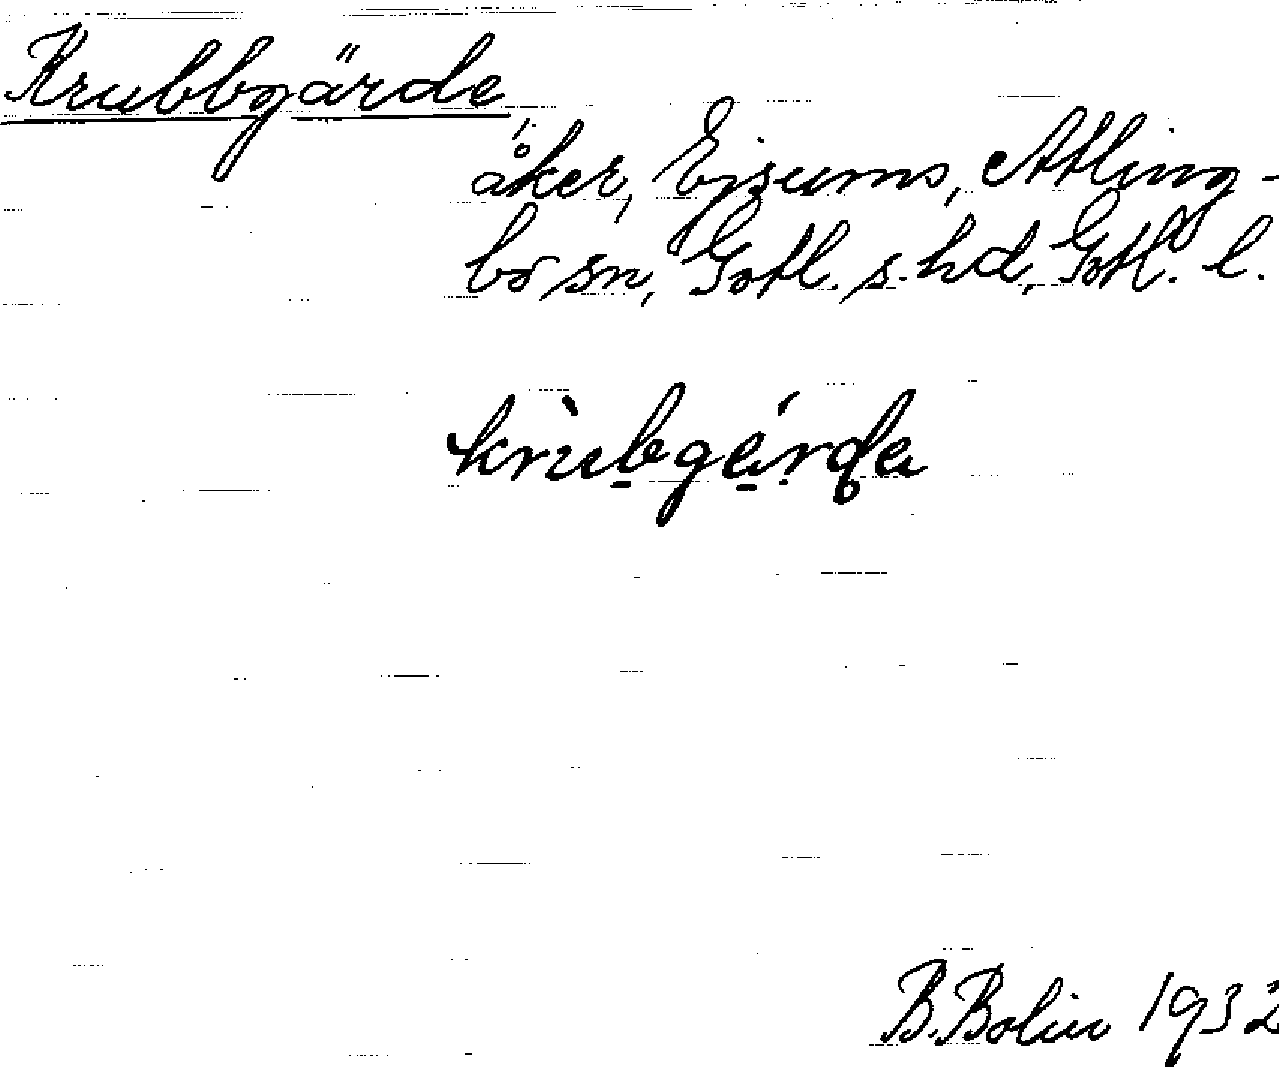 Krubbgärde,
åker, Ejsums, Atling-
bo sn, Gotl. s. hd, Gotl. l.
krùbgérda
B. Bolin 1932